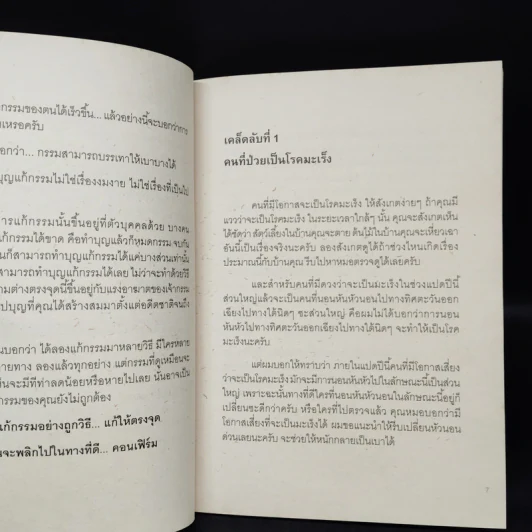 กรรมของตนได้เร็วขึ้น... แล้วอย่างนี้จะบอกว่าการ
เหรอครับ
อกว่า... กรรมสามารถบรรเทาให้เบาบางได้
บุญแก้กรรมไม่ใช่เรื่องงมงาย ไม่ใช่เรื่องที่เป็นไป
ารแก้กรรมนั้นขึ้นอยู่ที่ตัวบุคคลด้วย บางคน
ก้กรรมได้ขาด คือทำบุญแล้วก็หมดกรรม จบกัน
สามารถทำบุญแก้กรรมได้แค่บางส่วนเท่านั้น
สามารถทำบุญแก้กรรมได้เลย ไม่ว่าจะทำด้วยวิธี
ามต่างตรงจุดนี้ขึ้นอยู่กับแรงอาฆาตของเจ้ากรรม
บุญที่คุณได้สร้างสมมาตั้งแต่อดีตชาติจนถึง
นบอกว่า ได้ลองแก้กรรมมาหลายวิธี มีใครหลาย
ายทาง ลองแล้วทุกอย่าง แต่กรรมที่ดูเหมือนจะ
นจะมีทีท่าลดน้อยหรือหายไปเลย นั่นอาจเป็น
กรรมของคุณยังไม่ถูกต้อง
แก้กรรมอย่างถูกวิธี... แก้ให้ตรงจุด
นจะพลิกไปในทางที่ดี... คอนเฟิร์ม
เคล็ดลับที่ 1
คนที่ป่วยเป็นโรคมะเร็ง
คนที่มีโอกาสจะเป็นโรคมะเร็ง ให้สังเกตง่ายๆ ถ้าคุณมี
แววว่าจะเป็นโรคมะเร็ง ในระยะเวลาใกล้ๆ นั้น คุณจะสังเกตเห็น
ได้ชัดว่า สัตว์เลี้ยงในบ้านคุณจะตาย ต้นไม้ในบ้านคุณจะเหี่ยวเฉา
อันนี้เป็นเรื่องจริงนะครับ ลองสังเกตดูได้ถ้าช่วงไหนเกิดเรื่อง
ประมาณนี้กับบ้านคุณ รีบไปหาหมอตรวจดูได้เลยครับ
และสำหรับคนที่มีดวงว่าจะเป็นมะเร็งในช่วงแปดปีนี้
ส่วนใหญ่แล้วจะเป็นคนที่นอนหันหัวนอนไปทางทิศตะวันออก
เฉียงไปทางใต้นิดๆ ซะส่วนใหญ่ คือผมไม่ได้บอกว่าการนอน
หันหัวไปทางทิศตะวันออกเฉียงไปทางใต้นิดๆ จะทำให้เป็นโรค
มะเร็งนะครับ
แต่ผมบอกให้ทราบว่า ภายในแปดปีนี้คนที่มีโอกาสเสี่ยง
ว่าจะเป็นโรคมะเร็ง มักจะมีการนอนหันหัวไปในลักษณะนี้เป็นส่วน
ใหญ่ เพราะฉะนั้นทางที่ดีใครที่นอนหันหัวนอนในลักษณะนี้อยู่ก็
เปลี่ยนซะดีกว่าครับ หรือใครที่ไปตรวจแล้ว คุณหมอบอกว่ามี
โอกาสเสี่ยงที่จะเป็นมะเร็งได้ ผมขอแนะนำให้รีบเปลี่ยนหัวนอน
ด่วนเลยนะครับ จะช่วยให้หนักกลายเป็นเบาได้
7